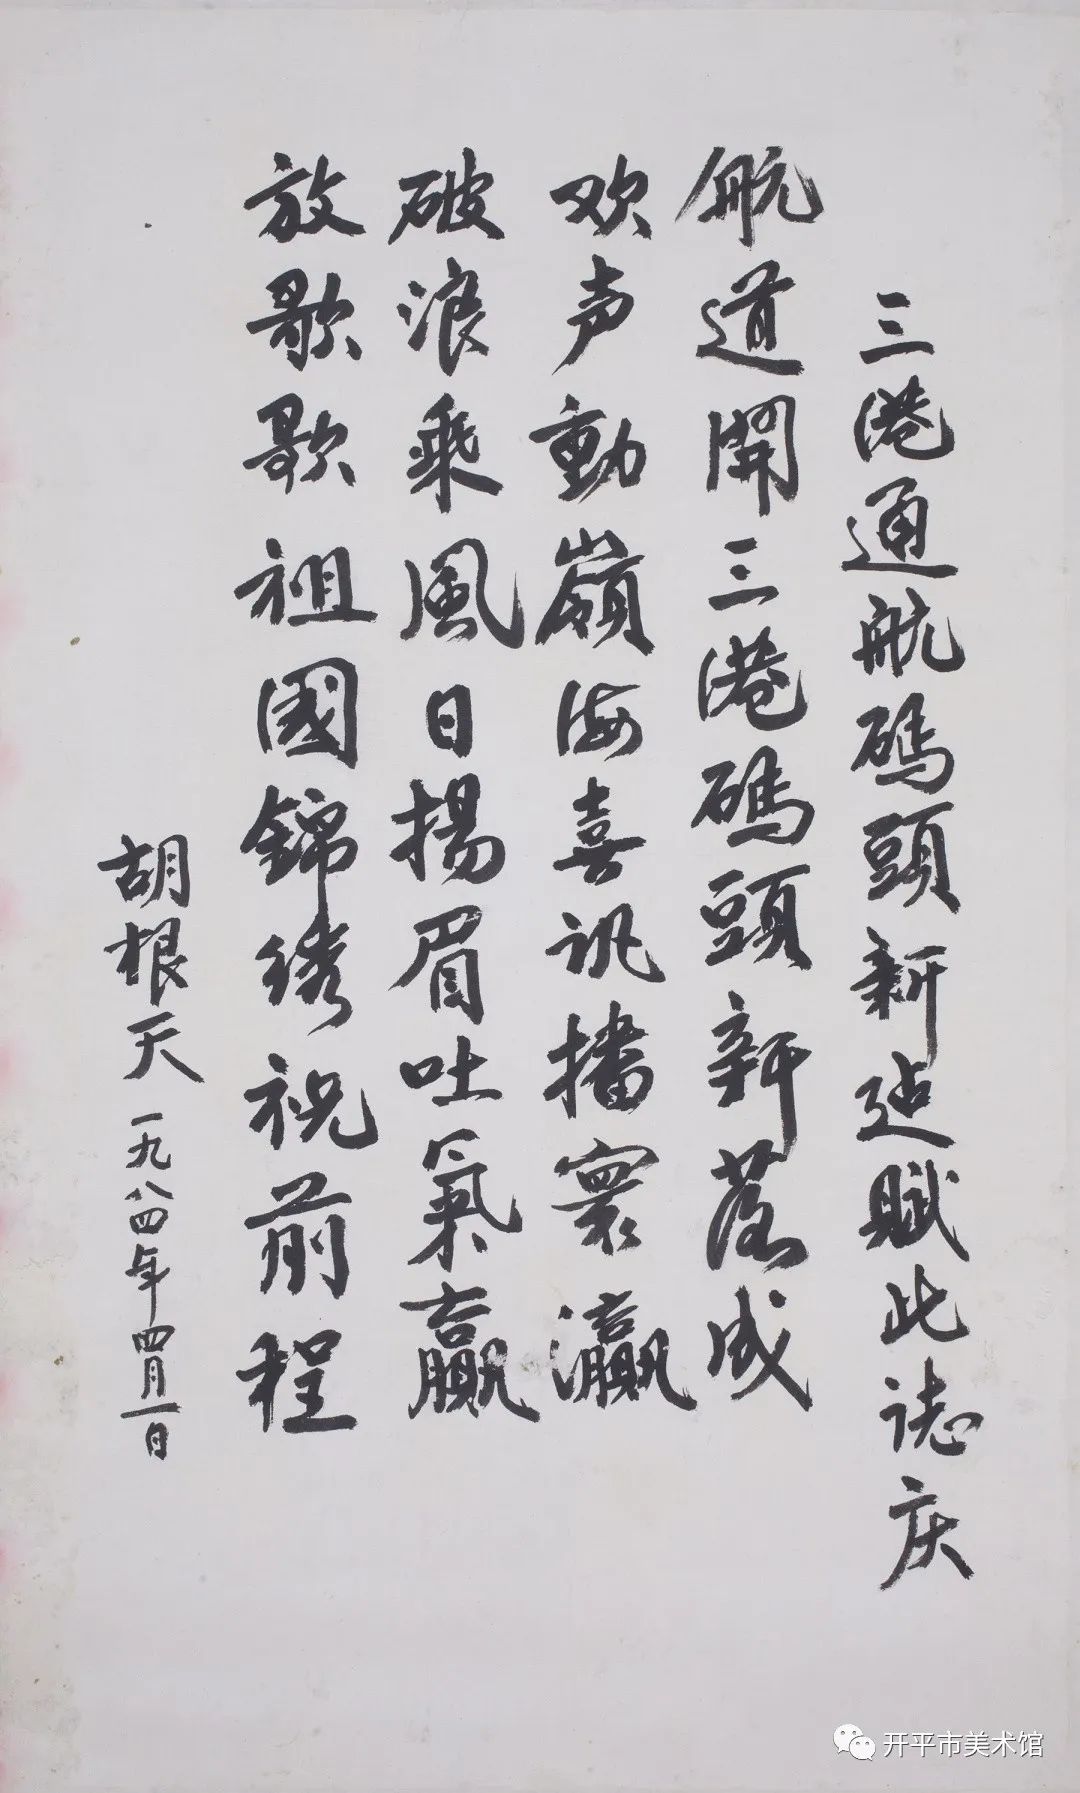 三港通航碼頭新迠賦此誌庆
航道開三港碼頭新落成
欢声動嶺海喜訊播寰瀛
破浪乘風日揚眉吐氣贏
放歌歌祖國錦綉祝前程
胡根天 一九八四年四月一日
开平市美术馆